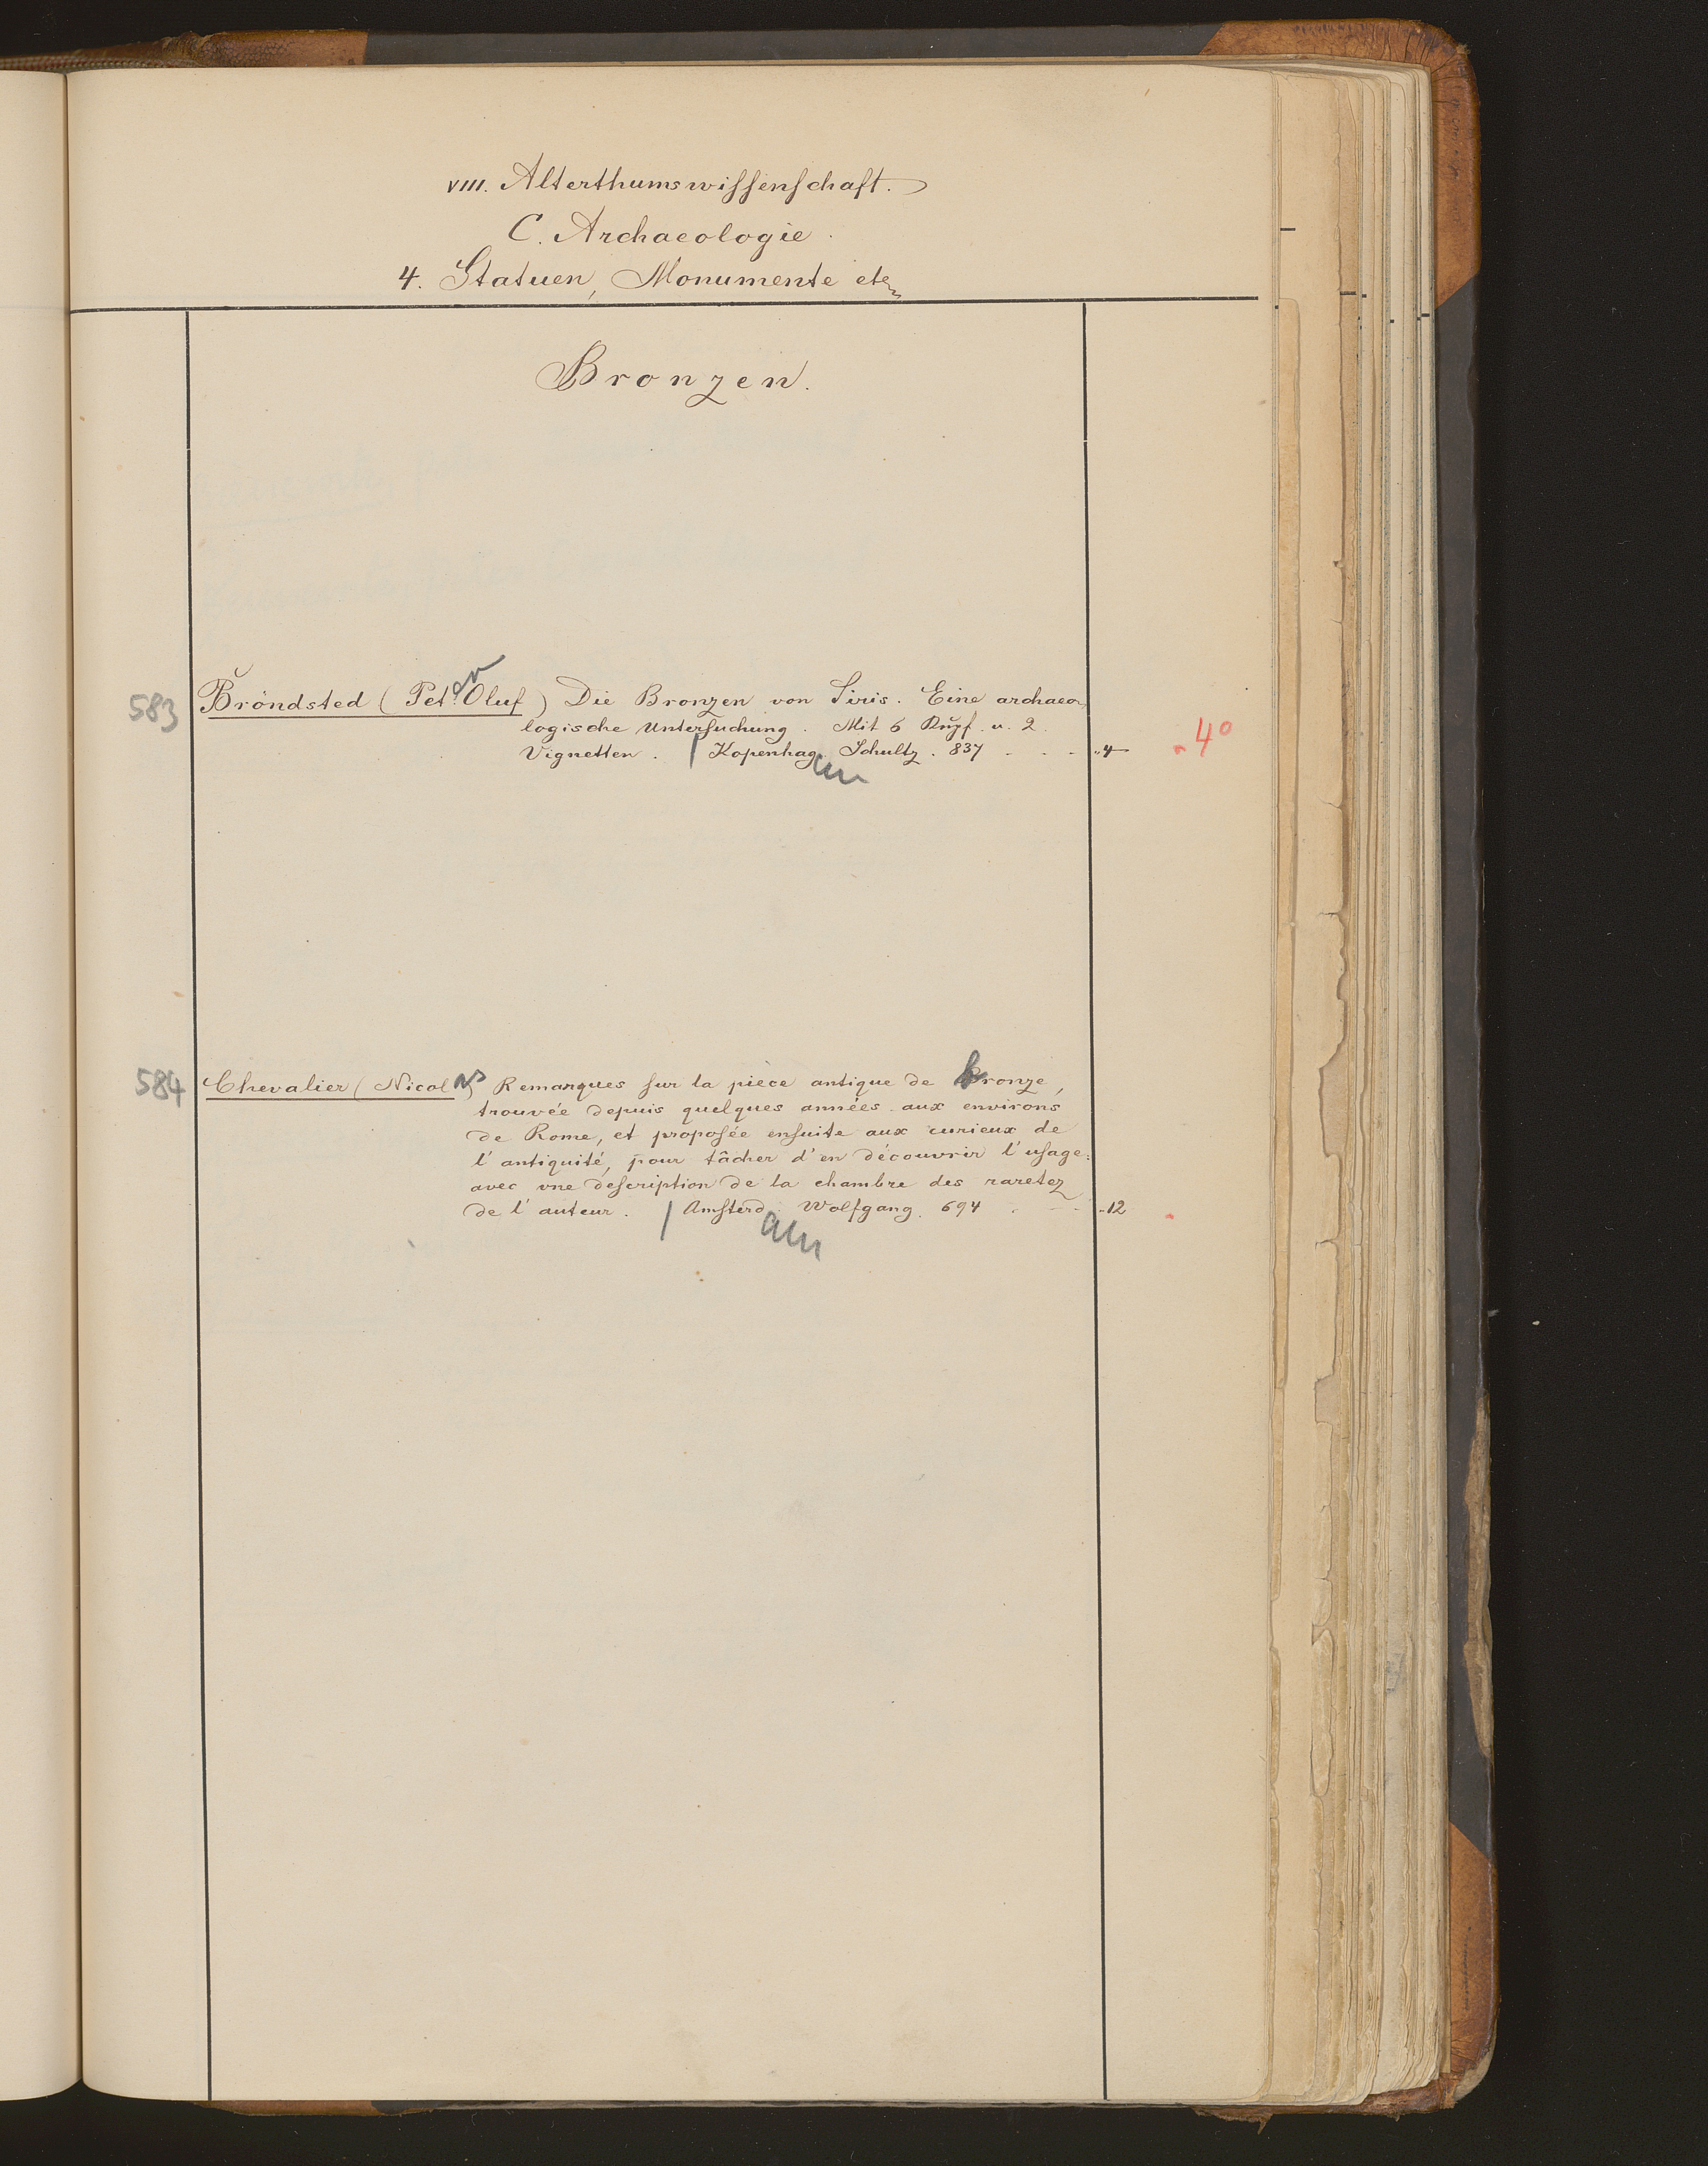 VIII. Alterthumswissenschaft.
C. Archaeologie.
4. Statuen, Monumente etc
Bronzen.
583 Bröndsted (Peter Oluf) Die Bronzen von Siris. Eine archaeo-
logische Untersuchung. Mit 6 Kupf. u. 2
Vignetten. | Kopenhagen Schultz. 837 - - - „4 „ 4°
584 Chevalier (Nicolas) Remarques sur la pièce antique de bronze,
trouvée depuis quelques années aux environs
de Rome, et proposée ensuite aux curieux de
l'antiquité, pour tâcher d'en découvrir l'usage:
avec une description de la chambre des raretez
de l'auteur. | Amsterdam Wolfgang. 694 - - - „12